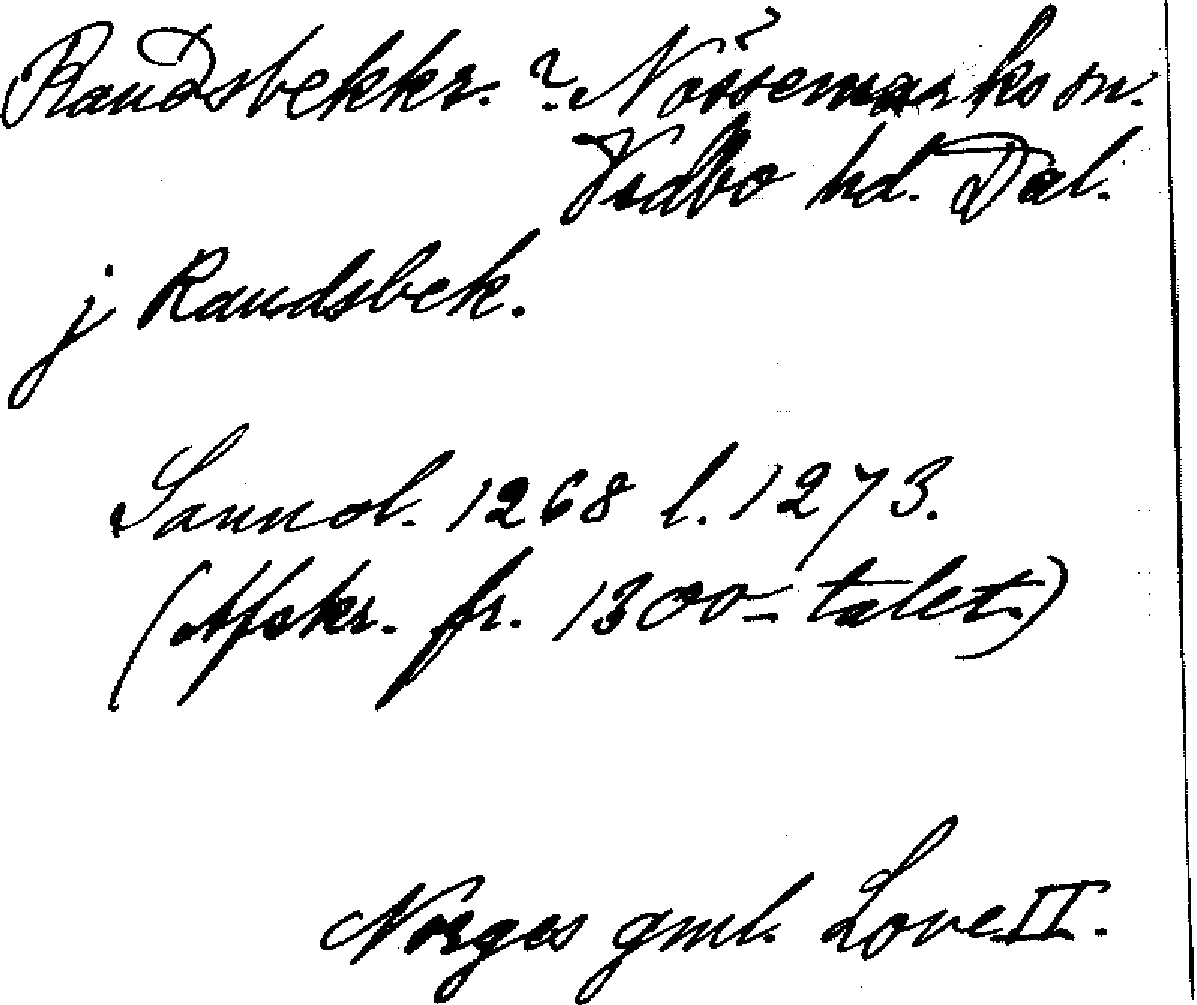 Raudsbekkr. ? Nössemarks sn.
Vedbo hd. Dal.
j Raudsbek.
Sannol. 1268 l. 1273.
(Afskr. fr. 1300-talet.)
Norges gml. Love II.